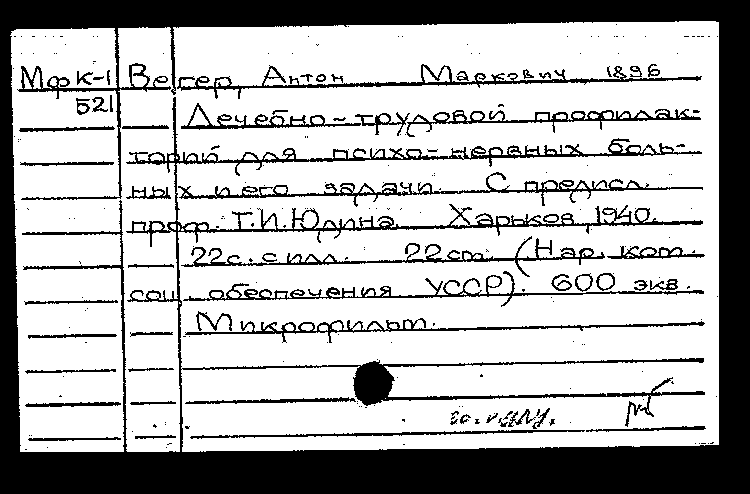 Мфк-1 Вегер, Антон Маркович 1896
521 Лечебно-трудовой профилак-
торий для психо-нервных боль-
ных и его задачи. С предисл.
проф. Т.И.Юдина. Харьков, 1940.
22с. с илл. 22см. (Нар. ком.
соц. обеспечения УССР). 600 экз.
Микрофильм.